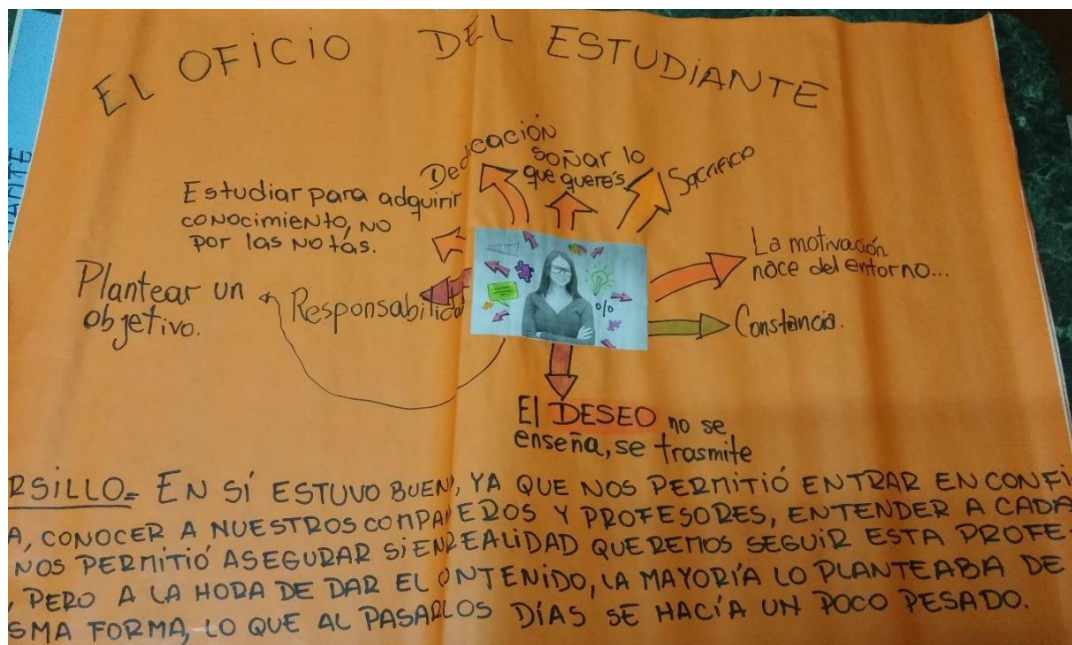 EL OFICIO DEL ESTUDIANTE
Dedicación
Soñar lo
que querés
Sacrificio
Estudiar para adquirir
conocimiento, no
por las notas.
La motivación
nace del entorno...
Plantear un
objetivo.
Responsabilidad
Constancia.
El DESEO no se
enseña, se trasmite
RSILLO= EN SÍ ESTUVO BUENO, YA QUE NOS PERMITIÓ ENTRAR EN CONFI
A, CONOCER A NUESTROS COMPAÑEROS Y PROFESORES, ENTENDER A CADA
NOS PERMITIÓ ASEGURAR SI EN REALIDAD QUEREMOS SEGUIR ESTA PROFE-
, PERO A LA HORA DE DAR EL CONTENIDO, LA MAYORÍA LO PLANTEABA DE
SMA FORMA, LO QUE AL PASAR LOS DÍAS SE HACÍA UN POCO PESADO.